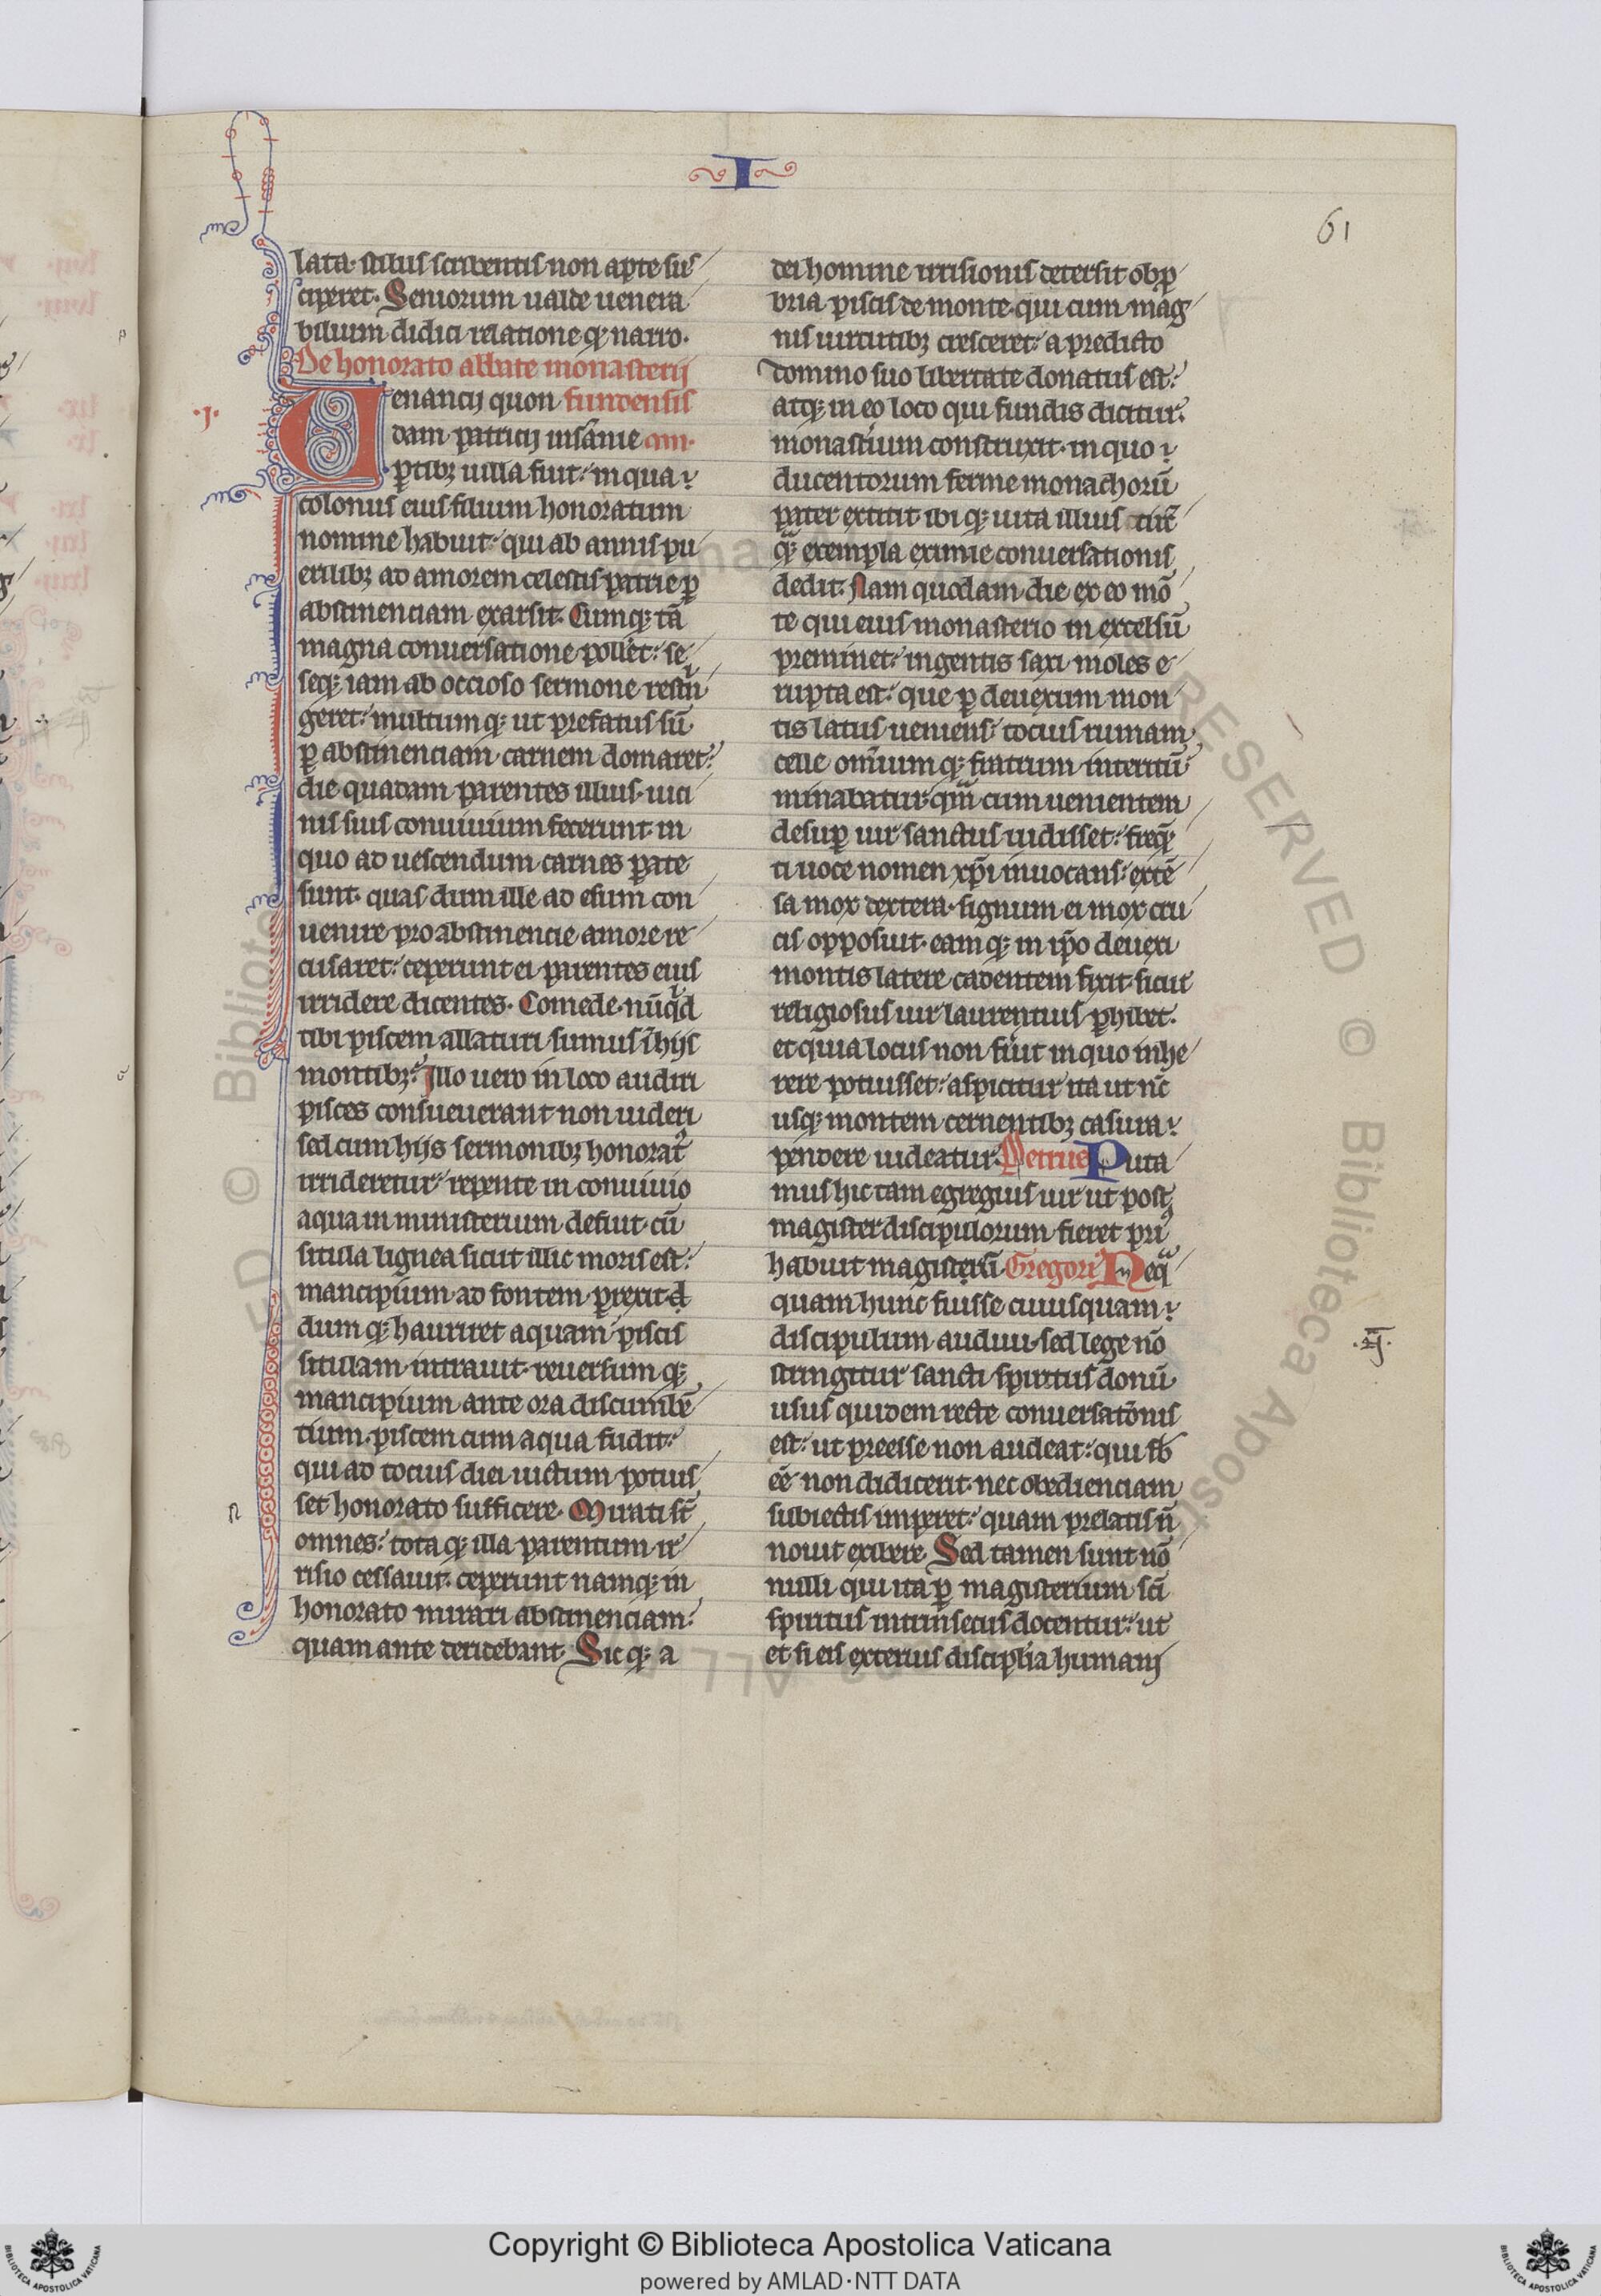 I
61
lata. stilus scribentis non apte sus
ciperet. Seniorum ualde uenera
bilium didici relatione qđ narro.
De honorato abbate monasterij
.j.
Uenancij quon fundensis
dam patricij insāmie
ꝑtibꝫ uilla fuit. in qua
colonus eius filium honoratum
nomine habuit. qui ab annis pu
erilibꝫ ad amorem celestis patrie ꝑ
abstinenciam exarsit. Cumqꝫ tā
magna conuersatione pollet. se
seqꝫ iam ab occioso sermone restⁱn
geret. multumqꝫ ut prefatus sū
ꝑ abstinenciam carnem domaret.
die quadam parentes illius uici
nis suis conuiuium fecerunt. in
quo ad uescendum carnes ꝑate
sunt. quas dum ille ad esum con
uenire pro abstinencie amore re
cusaret. ceperunt ei parentes eius
irridere dicentes. Comede. nūqⁱd
tibi piscem allaturi sumus ī hijs
montibꝫ. Illo uero in loco audiri
pisces consueuerant non uideri
sed cum hijs sermonibꝫ honorat᷒
irrideretur. repente in conuiuio
aqua in ministerium defuit. cū
situla lignea sicut illic moris est.
mancipium ad fontem ꝑrexit.
dumqꝫ hauriret aquam piscis
situlam intrauit. reuersumqꝫ
mancipium ante ora discumbē
tium. piscem cum aqua fudit.
qui ad tocius diei uictum potuis
set honorato sufficere. Mirati st̄
omnes. totaqꝫ illa parentum ir
risio cessauit. ceperunt namqꝫ in
honorato mirari abstinenciam.
quam ante deridebant. Sicqꝫ a
dei homine irrisionis detersit obꝓ
bria piscis de monte. qui cum mag
nis uirtutibꝫ cresceret. a predicto
domino suo libertate donatus est.
atqꝫ in eo loco qui fundis dicitur.
monastium construxit. in quo
ducentorum ferme monachorū
pater extitit ibiqꝫ uita illius
exempla eximie conuersationis
dedit. Nam quodam die ex eo mō
te qui eius monasterio in excelsū
preminet. ingentis saxi moles e
rupta est. que ꝑ deuexum mon
tis latus ueniens. tocius ruinam
celle omniumqꝫ fratrum interitū
minabatur. qm̄ cum uenientem
desuꝑ uir sanctus uidisset. freqn̄
ti uoce nomen xp̄i inuocans. extē
sa mox dextera. signum ei mox cru
cis opposuit. eamqꝫ in ip̄o deuexi
montis latere cadentem fixit. sicut
religiosus uir laurentius ꝑhibet.
et quia locus non fuit in quo inhe
rere potuisset. aspicitur ita ut nc̄
usqꝫ montem cernentibꝫ casura
pendere uideatur. Petrus Puta
mus hic tam egregius uir ut post
magister discipulorum fieret pri᷒
habuit magisterū. Gregori Neqͣ
quam hunc fuisse cuiusquam
.ij.
discipulum audiui. sed lege nō
stringitur sancti spiritus donū
usus quidem recte conuersatōnis
est. ut preesse non audeat. qui sb̄
eē non didicerit. nec obedienciam
subiectis imperet. quam prelatis n̄
nouit exibere. Sed tamen sunt nō
nulli qui ita ꝑ magisterium sci
spiritus intrinsecus docentur. ut
et si eis exterius disciplīa humanj
Copyright © Biblioteca Apostolica Vaticana
powered by AMLAD·NTT DATA